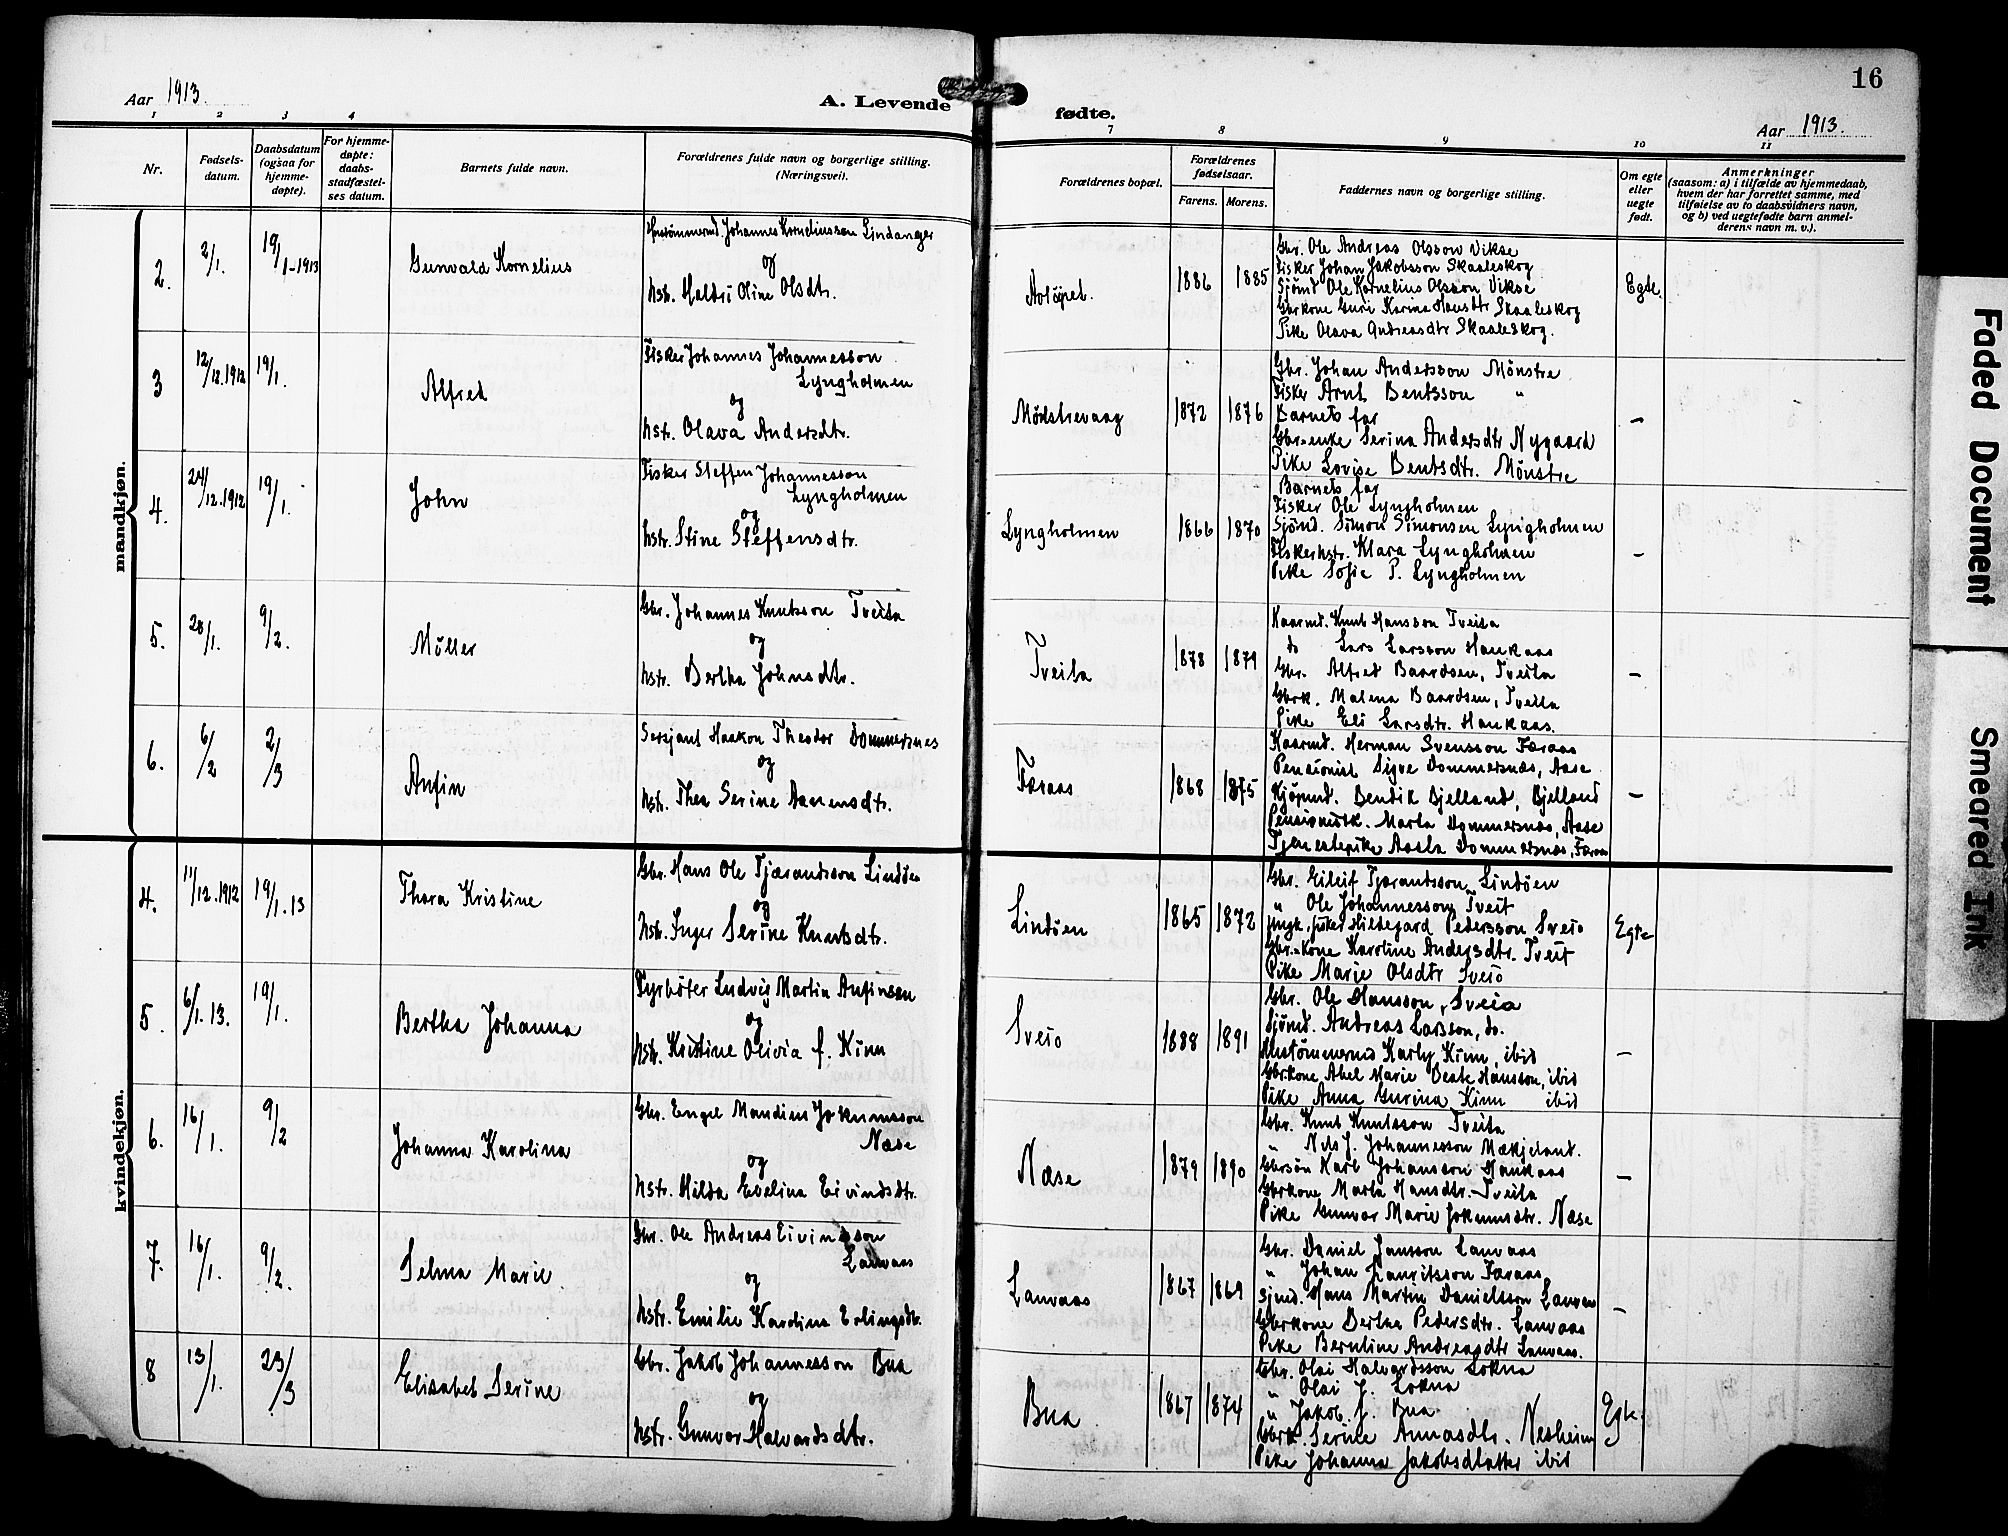 16
Aar 1913.
A. Levende fødte.
Aar 1913.
1 2 3 4 7 8 9 10 11
Nr.
Fødsels-
datum.
Daabsdatum
(ogsaa for
hjemme-
døpte).
For hjemme-
døpte:
daabs-
stadfæstel-
ses datum.
Barnets fulde navn.
Forældrenes fulde navn og borgerlige stilling.
(Næringsvei).
Forældrenes bopæl.
Forældrenes
fødselsaar.
Farens. Morens.
Faddernes navn og borgerlige stilling.
Om egte
eller
uegte
født.
Anmerkninger
(saasom: a) i tilfælde av hjemmedaab,
hvem der har forrettet samme, med
tilføielse av to daabsvidners navn,
og b) ved uegtefødte barn anmel-
derens navn m. v.).
mandkjøn.
2. 2/1. 19/1-1913
Gunvald Kornelius
Johannes Korneliusson Lindanger
og
hstr. Haldri Oline Olsdtr.
1886 1885
Gbr. Ole Andreas Olsson Vikse
Fisker Johan Jakobsson Skaaleskog
Sjømd Ole Kornelius Olsson Vikse
Gbrkone Guri Karina Hansdtr Skaaleskog
Pike Olava Andreasdtr Skaaleskog.
Egte.
3 12/12.1912 19/1.
Alfred
Fisker Johannes Johannesson
Lyngholmen
og
hstr. Olava Andersdtr.
Mønstrevaag
1872 1876
Gbr. Johan Andersson Mønstre
Fisker Arnt Bentsson "
Barnets far
Gbr-enke Serina Andersdtr Nygaard
Pike Lovise Bentsdtr. Mønstre
–
4. 24/12.1912 19/1.
John
Fisker Steffen Johannesson
Lyngholmen
og
hstr. Stine Steffensdtr.
Lyngholmen
1866 1870
Barnets far
Fisker Ole Lyngholmen
Sjømd. Simon Simonsen Lyngholmen
Fiskerhstr. Klara Lyngholmen
Pike Sofie P. Lyngholmen
–
5. 28/1. 9/2.
Møller
Gbr. Johannes Knutsson Tveita
og
hstr. Bertha Johnsdtr.
Tveita
1878 1879
Kaarmd. Knut Hansson Tveita
do Lars Larsson Haukaas
Gbr. Alfred Baardsen, Tveita
Gbrk. Malena Baardsen, Tveita
Pike Eli Larsdtr. Haukaas.
–
6. 6/2 2/3
Anfin
Sersjant Haakon Theodor Dommersnes
og
hstr. Thea Serine Aanensdtr.
Færaas
1868 1875
Kaarmd. Herman Svensson Færaas
Pensionist Sigve Dommersnes, Aase
Kjøpmd. Bendik Bjelland, Bjelland
Pensionistk. Marta Dommersnes, Aase
Tjenestepike Aasta Dommersnes, Færaas
–
kvindekjøn.
4. 11/12.1912 19/1.13
Thora Kristine
Gbr. Hans Ole Tjærandsson Lindøen
og
hstr. Inger Serine Knutsdtr.
Lindøen
1865 1872
Gbr. Eileif Tjærantsson Lindøen
" Ole Johannesson Tveit
Hildegard Pedersson Sveio
Gbr.-kone Karoline Andersdtr. Tveit
Pike Marie Olsdtr Sveio
Egte
5. 6/1.13. 19/1.
Bertha Johanna
Fyrbøter Ludvig Martin Anfinsen
og
hstr. Kristine Olivia f. Kinn
Sveio
1888 1891
Gbr. Ole Hansson, Sveio
Sjømd. Andreas Larsson, do.
Karly Kinn, ibid
Gbrkone Abel Marie Beate Hansson, ibid
Pike Anna Gurina Kinn ibid
–
6. 16/1. 9/2
Johanna Karolina
Gbr. Engel Mandius Jokumsson
Næse
og
hstr. Hilda Evelina Eivindsdtr.
Næse
1879 1890
Gbr. Knut Knutsson Tveita
" Nils J. Johannesson Mækjelant.
Gbrsøn Karl Johansson Haukaas
Gbrkone Marta Hansdtr.-Tveita
Pike Gunvor Marie Jokumsdtr. Næse
–
7. 16/1. 9/2.
Selma Marie
Gbr. Ole Andreas Eivindsson
Lauvaas
og
hstr. Emilie Karolina Erlingsdtr.
Lauvaas
1867 1869
Gbr. Daniel Jansson Lauvaas
" Johan Lauritsson Færaas
Sjmd. Hans Martin Danielsson Lauvaas
Gbrkone Bertha Pedersdtr. Lauvaas
Pike Berntine Andreasdtr Lauvaas.
–
8 13/1. 23/3
Elisabet Serine
Gbr. Jakob Johannesson Bua
og
hstr. Gunvor Halvardsdtr.
Bua
1867 1874
Gbr. Olai Halvardsson Lokna
" Olai J. Lokna
" Jakob J. Bua
Gbrk. Serine Annasdtr. Nesheim
Pike Johanna Jakobsdatter ibid
Egte.
Faded Document
Smeared Ink